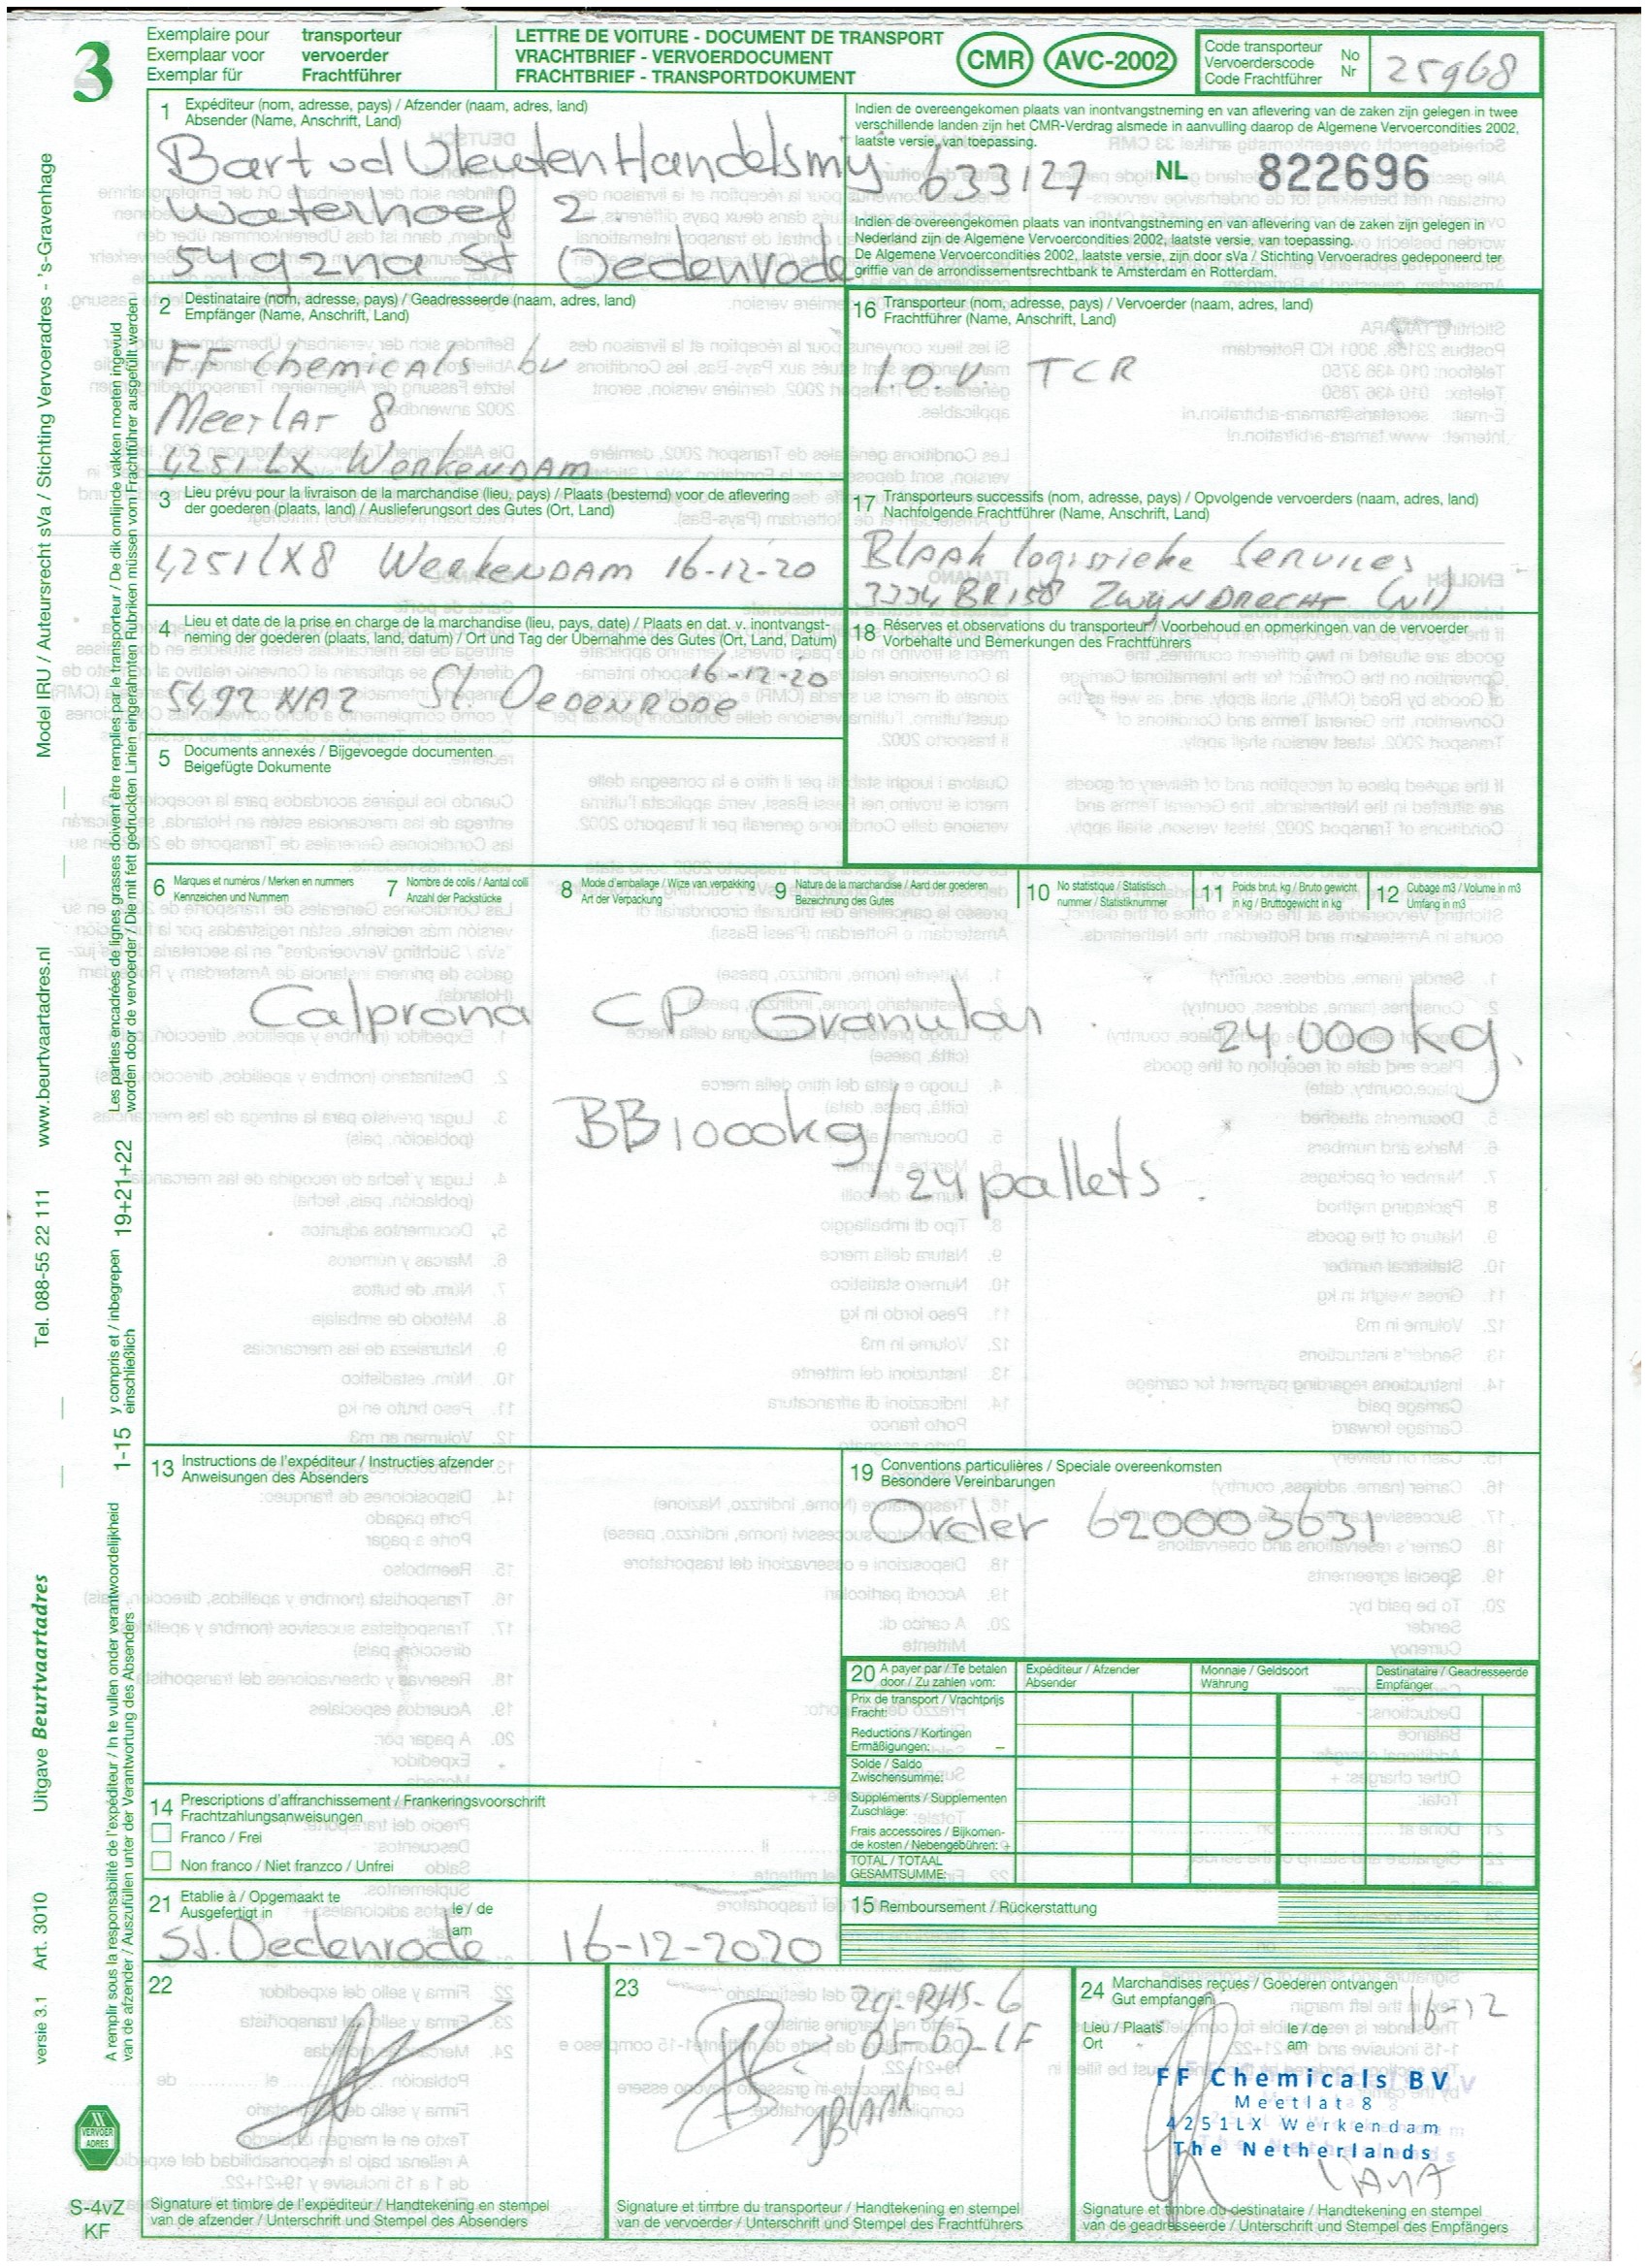 3
Exemplaire pour transporteur
Exemplaar voor vervoerder
Exemplar für Frachtführer
LETTRE DE VOITURE - DOCUMENT DE TRANSPORT
VRACHTBRIEF - VERVOERDOCUMENT
FRACHTBRIEF - TRANSPORTDOKUMENT
CMR
AVC-2002
Code transporteur No
Vervoerderscode Nr
Code Frachtführer
25968
1 Expéditeur (nom, adresse, pays) / Afzender (naam, adres, land)
Absender (Name, Anschrift, Land)
Bart vd Vleuten Handelsmy
Waterhoef 2
5492na St Oedenrode
Indien de overeengekomen plaats van inontvangstneming en van aflevering van de zaken zijn gelegen in twee
verschillende landen zijn het CMR-Verdrag alsmede in aanvulling daarop de Algemene Vervoercondities 2002,
laatste versie, van toepassing.
633127
NL 822696
Indien de overeengekomen plaats van inontvangstneming en van aflevering van de zaken zijn gelegen in
Nederland zijn de Algemene Vervoercondities 2002, laatste versie, van toepassing.
De Algemene Vervoercondities 2002, laatste versie, zijn door sVa / Stichting Vervoeradres gedeponeerd ter
griffie van de arrondissementsrechtbank te Amsterdam en Rotterdam.
2 Destinataire (nom, adresse, pays) / Geadresseerde (naam, adres, land)
Empfänger (Name, Anschrift, Land)
FF Chemicals bv
Meetlat 8
4251 LX Werkendam
16 Transporteur (nom, adresse, pays) / Vervoerder (naam, adres, land)
Frachtführer (Name, Anschrift, Land)
I.O.V. TCR
3 Lieu prévu pour la livraison de la marchandise (lieu, pays) / Plaats (bestemd) voor de aflevering
der goederen (plaats, land) / Auslieferungsort des Gutes (Ort, Land)
4251LX8 Werkendam 16-12-20
17 Transporteurs successifs (nom, adresse, pays) / Opvolgende vervoerders (naam, adres, land)
Nachfolgende Frachtführer (Name, Anschrift, Land)
Blaak logistieke Services
3334 BR158 Zwijndrecht (Nl)
4 Lieu et date de la prise en charge de la marchandise (lieu, pays, date) / Plaats en dat. v. inontvangst-
neming der goederen (plaats, land, datum) / Ort und Tag der Übernahme des Gutes (Ort, Land, Datum)
16-12-20
5492 NA2 St. Oedenrode
18 Réserves et observations du transporteur / Voorbehoud en opmerkingen van de vervoerder
Vorbehalte und Bemerkungen des Frachtführers
5 Documents annexés / Bijgevoegde documenten
Beigefügte Dokumente
6 Marques et numéros / Merken en nummers
Kennzeichen und Nummern
7 Nombre de colis / Aantal colli
Anzahl der Packstücke
8 Mode d'emballage / Wijze van verpakking
Art der Verpackung
9 Nature de la marchandise / Aard der goederen
Bezeichnung des Gutes
10 No statistique / Statistisch
nummer / Statistiknummer
11 Poids brut, kg / Bruto gewicht
in kg / Bruttogewicht in kg
12 Cubage m3 / Volume in m3
Umfang in m3
Calprona CP Granular. 24.000 kg.
BB1000kg / 24 pallets.
13 Instructions de l'expéditeur / Instructies afzender
Anweisungen des Absenders
19 Conventions particulières / Speciale overeenkomsten
Besondere Vereinbarungen
Order 620003631
20 A payer par / Te betalen
door / Zu zahlen vom:
Expéditeur / Afzender
Absender
Monnaie / Geldsoort
Währung
Destinataire / Geadresseerde
Empfänger
Prix de transport / Vrachtprijs
Fracht:
Reductions / Kortingen
Ermäßigungen: –
Solde / Saldo
Zwischensumme:
Suppléments / Supplementen
Zuschläge:
Frais accessoires / Bijkomen-
de kosten / Nebengebühren: +
TOTAL / TOTAAL
GESAMTSUMME:
14 Prescriptions d'affranchissement / Frankeringsvoorschrift
Frachtzahlungsanweisungen
Franco / Frei
Non franco / Niet franzco / Unfrei
15 Remboursement / Rückerstattung
21 Etablie à / Opgemaakt te le / de
Ausgefertigt in am
St. Oedenrode 16-12-2020
22
Signature et timbre de l'expéditeur / Handtekening en stempel
van de afzender / Unterschrift und Stempel des Absenders
23
29-RHS-6
Blaak
Signature et timbre du transporteur / Handtekening en stempel
van de vervoerder / Unterschrift und Stempel des Frachtführers
24 Marchandises reçues / Goederen ontvangen
Gut empfangen
16-12
Lieu / Plaats le / de
Ort am
FF Chemicals BV
Meetlat 8
4251LX Werkendam
The Netherlands
Signature et timbre du destinataire / Handtekening en stempel
van de geadresseerde / Unterschrift und Stempel des Empfängers
Model IRU / Auteursrecht sVa / Stichting Vervoeradres - 's-Gravenhage
www.beurtvaartadres.nl
Tel. 088-55 22 111
Uitgave Beurtvaartadres
Art. 3010
versie 3.1
Les parties encadrées de lignes grasses doivent être remplies par le transporteur / De dik omlijnde vakken moeten ingevuld
worden door de vervoerder / Die mit fett gedruckten Linien eingerahmten Rubriken müssen vom Frachtführer ausgefüllt werden.
19+21+22
y compris et / inbegrepen
einschließlich
1-15
A remplir sous la responsabilité de l'expéditeur / In te vullen onder verantwoordelijkheid
van de afzender / Auszufüllen unter der Verantwortung des Absenders
VERVOER
ADRES
S-4vZ
KF